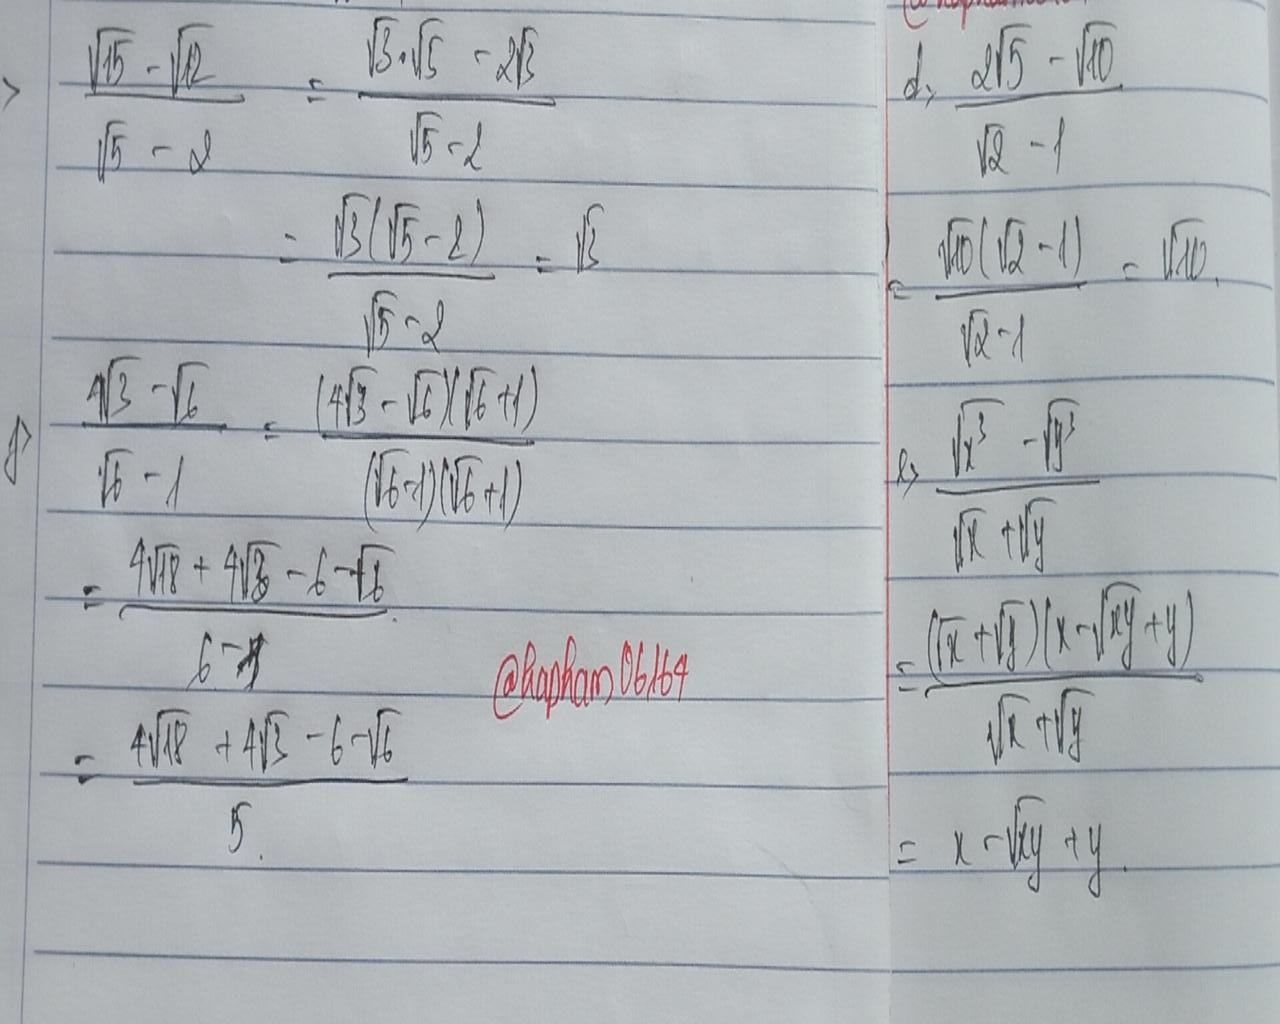 > (√15 - √12)/(√5 - 2) = (√3.√5 - 2√3)/(√5 - 2)
= √3(√5 - 2)/(√5 - 2) = √3
g> (4√3 - √6)/(√6 - 1) = (4√3 - √6)(√6 + 1)/(√6 - 1)(√6 + 1)
= (4√18 + 4√3 - 6 - √6)/(6 - 1)
@hapham06164
= (4√18 + 4√3 - 6 - √6)/5.
d> (2√5 - √10)/(√2 - 1)
= √10(√2 - 1)/(√2 - 1) = √10.
(√x³ - √y³)/(√x + √y)
= (√x + √y)(x - √xy + y)/(√x + √y)
= x - √xy + y.